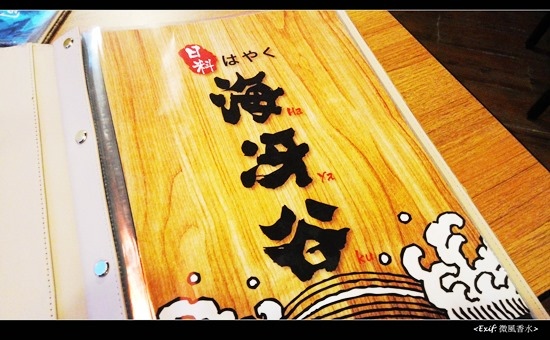 日料 はやく
海牙谷
Ha
Ya
Ku
<Exif: 微風香水>